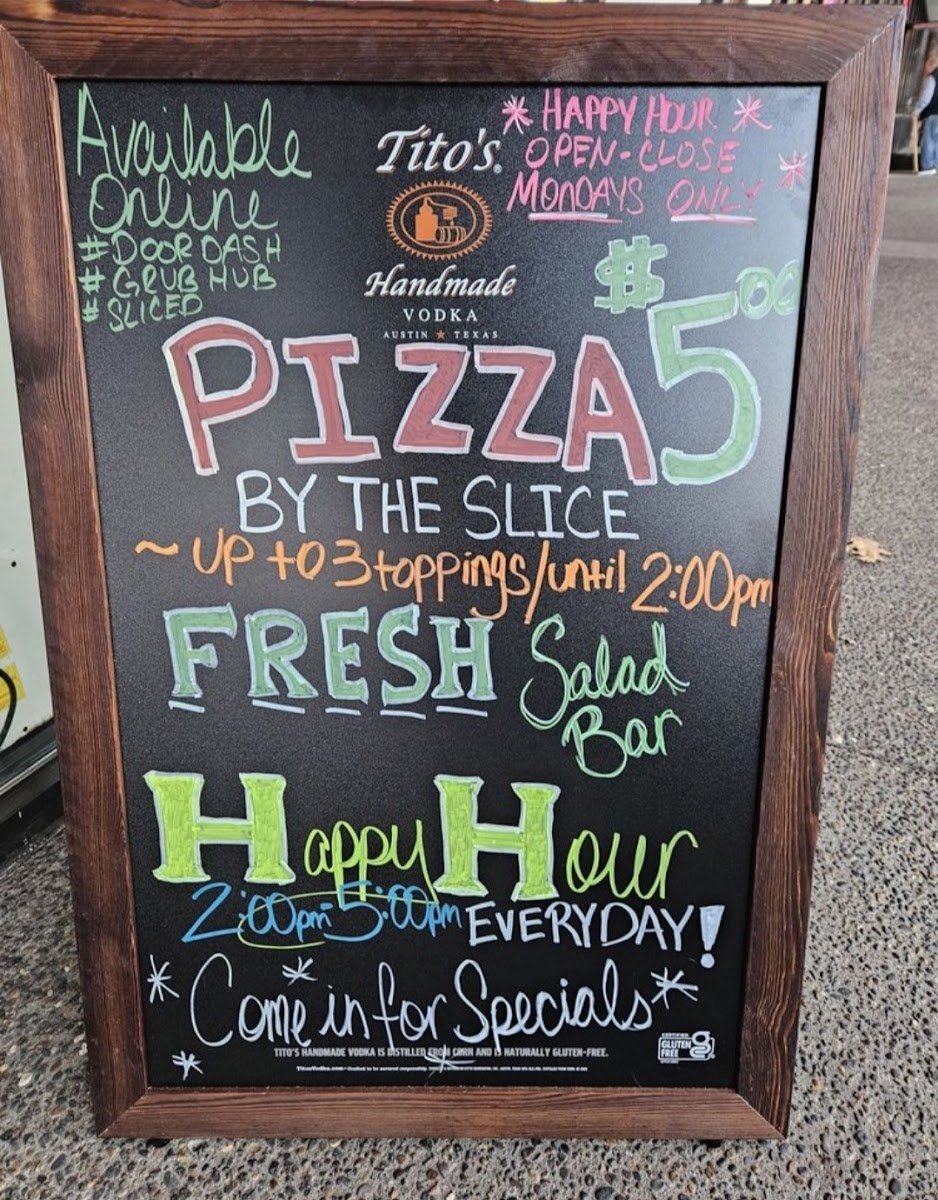 Available
Online
#DOOR DASH
#GRUB HUB
#SLICED
Tito's®
Handmade
VODKA
AUSTIN ★ TEXAS
* HAPPY HOUR *
OPEN-CLOSE *
MONDAYS ONLY
$5.00
PIZZA
BY THE SLICE
~ UP to 3 toppings/until 2:00pm
FRESH Salad
Bar
Happy Hour
2:00pm-5:00pm EVERYDAY!
* Come in for Specials *
TITO'S HANDMADE VODKA IS DISTILLED FROM CORN AND IS NATURALLY GLUTEN-FREE.
CERTIFIED
GLUTEN
FREE